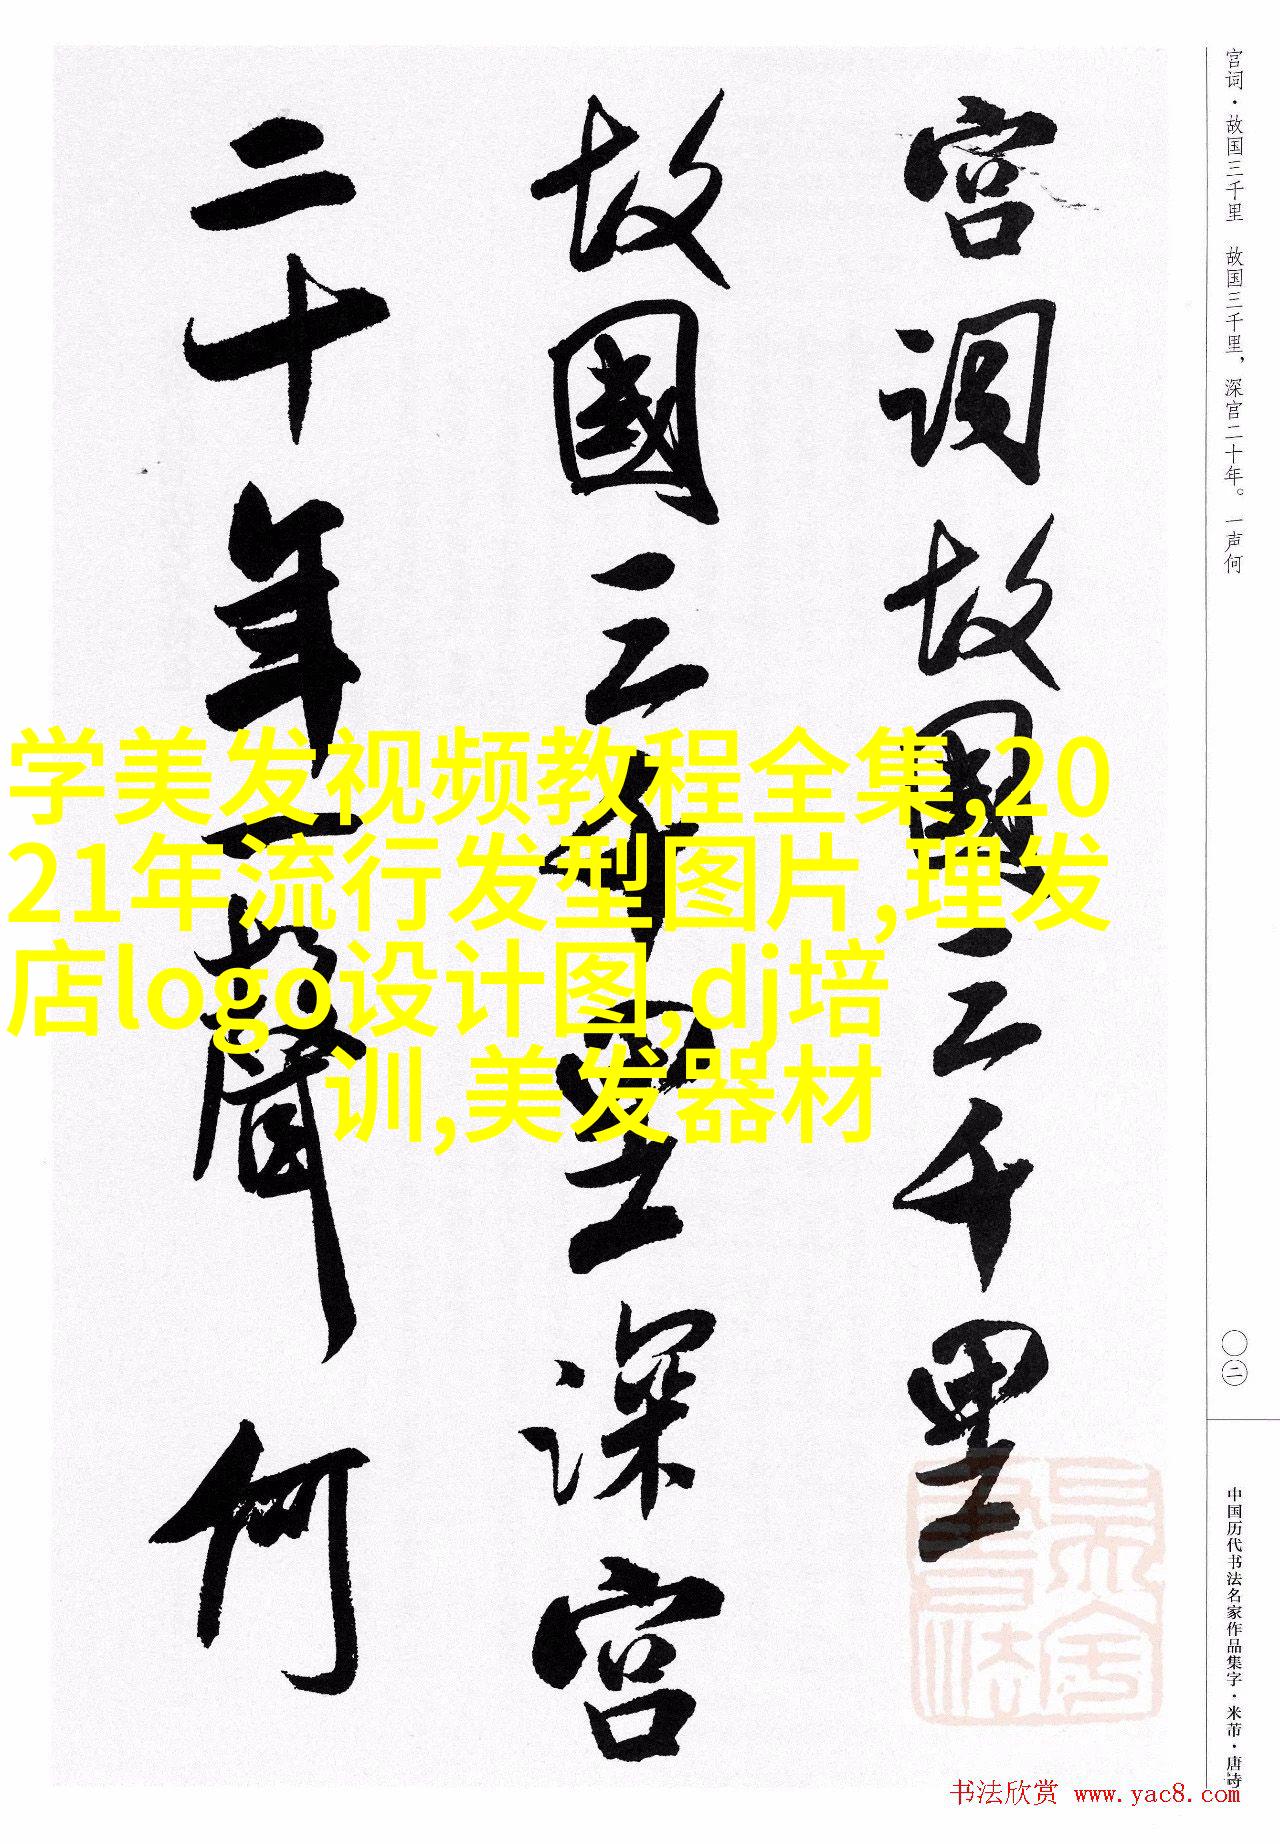 宫词·故国三千里　故国三千里，深宫二十年。一声何
宫词故国三千里
故國三千里深宫
二十年一聲何
学美发视频教程全集,20
21年流行发型图片,理发
店logo设计图,dj培
训,美发器材
〇二
中国历代书法名家作品集字·米芾·唐诗
书法欣赏 www.yac8.com